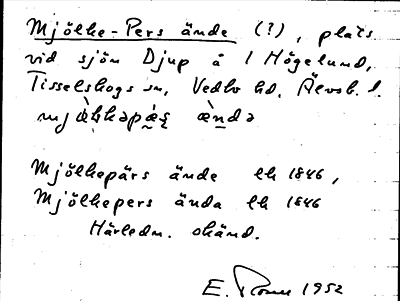 Mjölke-Pers ände (?), plats
vid sjön Djup å 1 Högelund,
Tisselskogs sn, Vedbo hd, Älvsb. l.
Mjölkepärs ände lk 1846,
Mjölkepers ända lk 1846
Härledn. okänd.
E. 1952